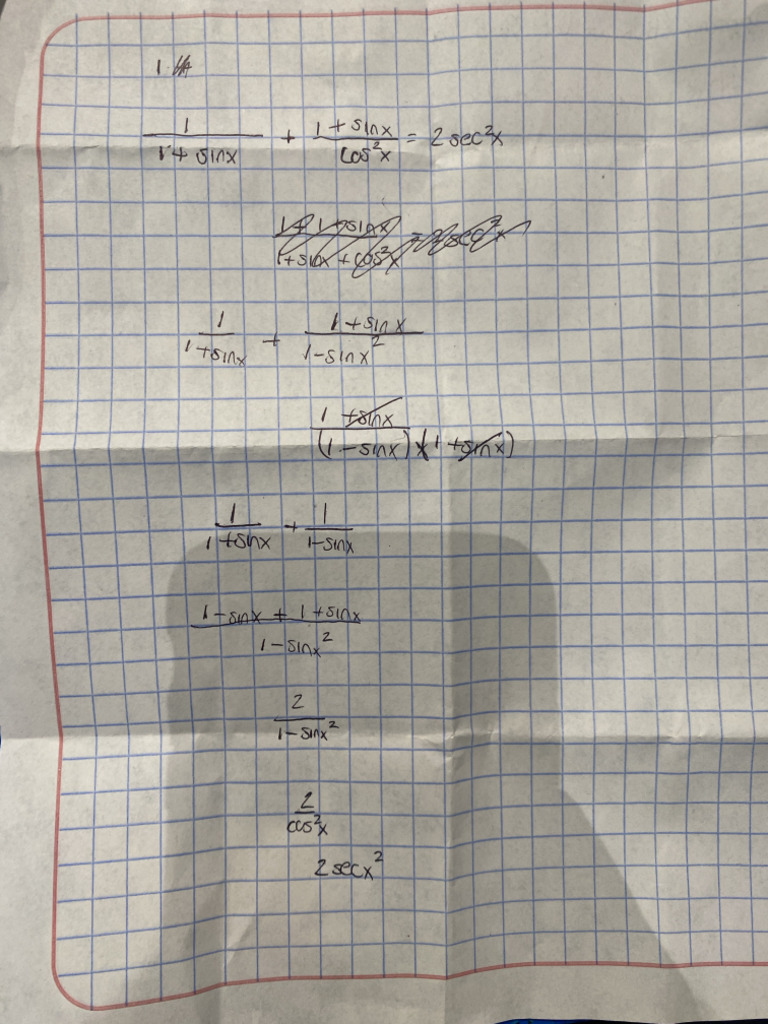 1.
1/(1 + sinx) + (1 + sinx)/(cos²x) = 2 sec²x
1/(1 + sinx) + (1 + sinx)/(1 - sinx²)
(1 + sinx)/((1 - sinx)(1 + sinx))
1/(1 + sinx) + 1/(1 - sinx)
(1 - sinx + 1 + sinx)/(1 - sinx²)
2/(1 - sinx²)
2/(cos²x)
2 secx²